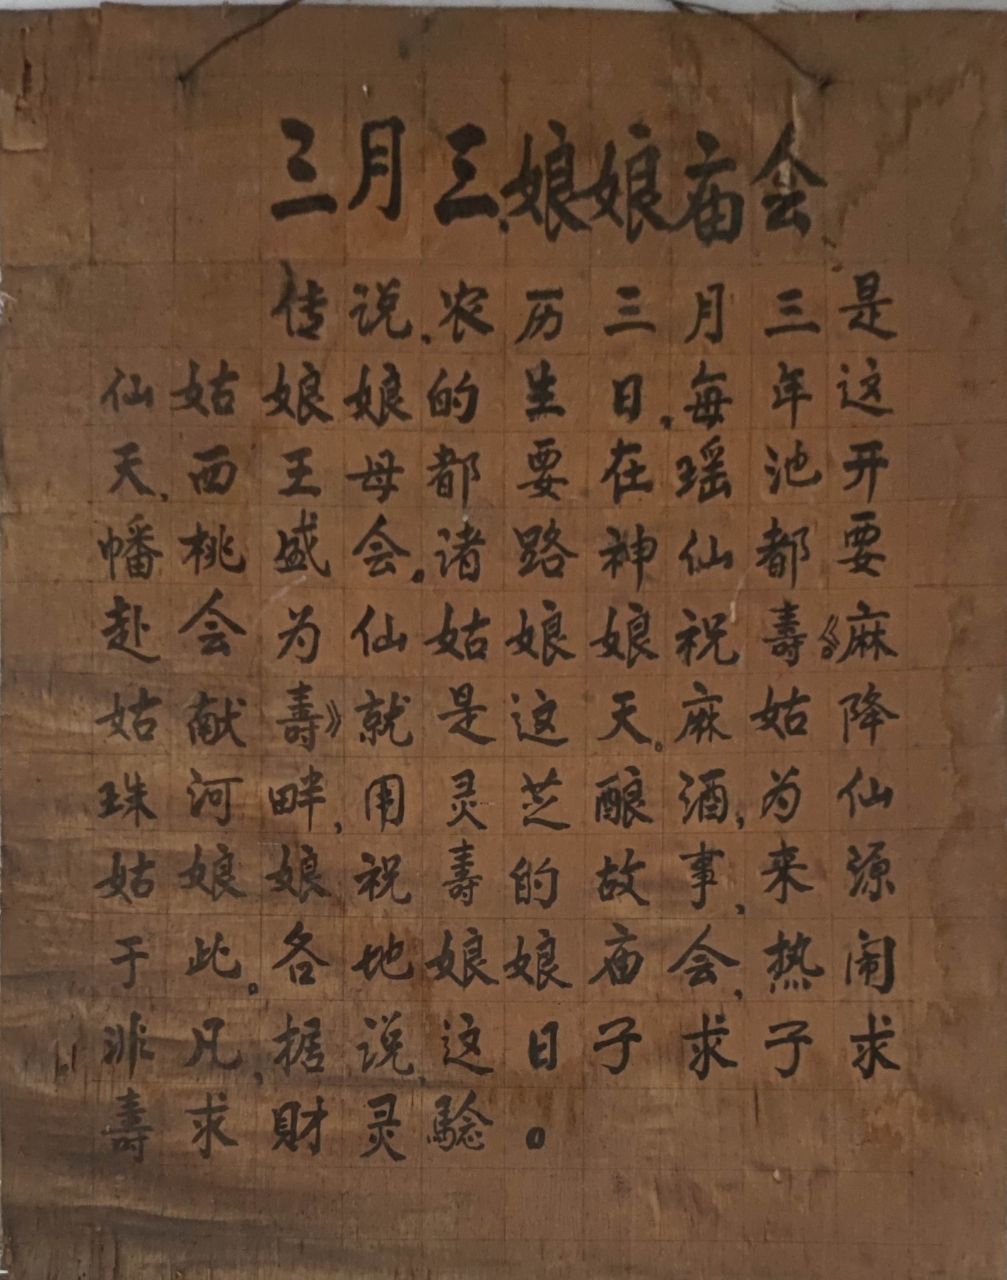 三月三,娘娘庙会
传说,农历三月三是
仙姑娘娘的生日,每年这
天,西王母都要在瑶池开
幡桃盛会。诸路神仙都要
赴会为仙姑娘娘祝壽《麻
姑献壽》就是这天。麻姑降
珠河畔,用灵芝酿酒,为仙
姑娘娘祝壽的故事,来源
于此。各地娘娘庙会,热闹
非凡,据说,这日子求子求
壽求财灵驗。